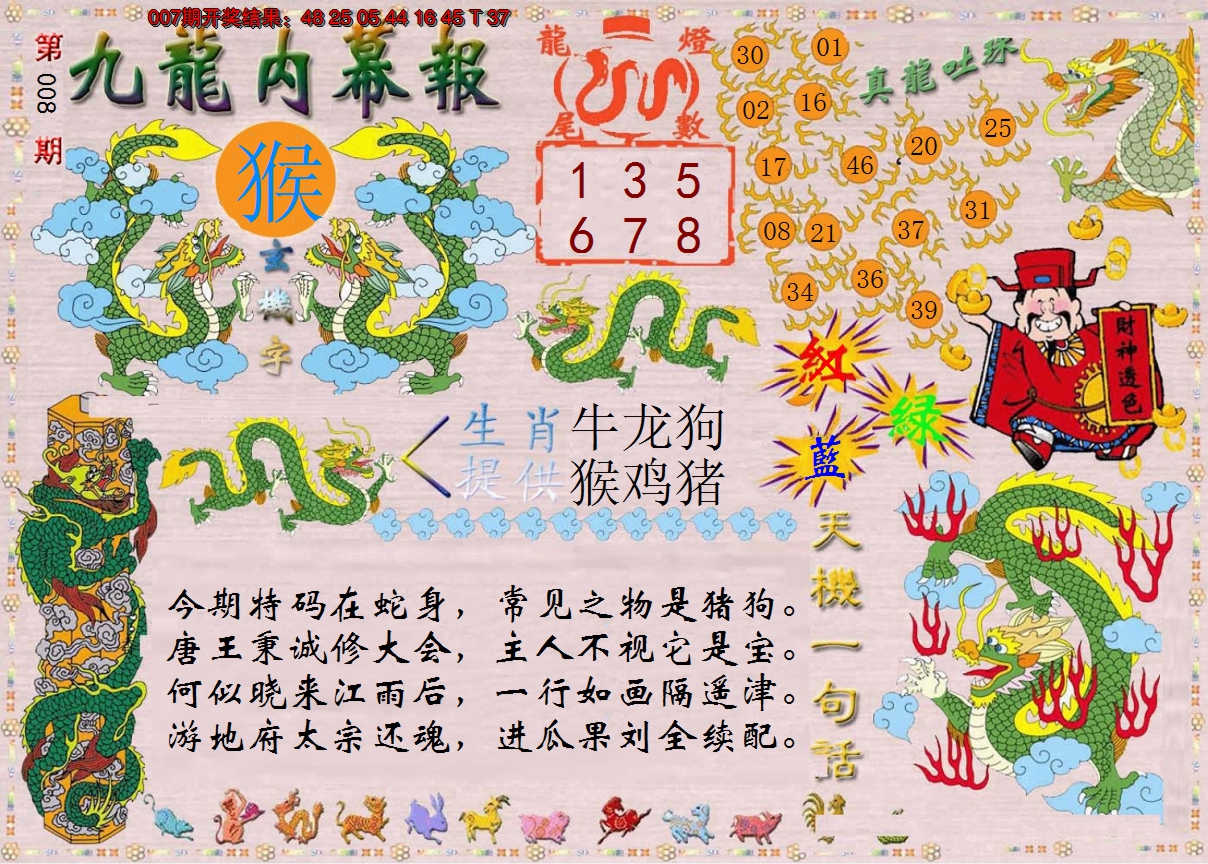 007期开奖结果：48 25 05 44 16 45 T 37
第
008
期
九龍内幕報
猴
玄
機
字
龍 燈
尾 數
1 3 5
6 7 8
真龍吐珠
30 01
02 16
25
20
17 46
31
08 21 37
36
34
39
財神透色
紅
綠
藍
生肖 牛龙狗
提供 猴鸡猪
今期特码在蛇身，常见之物是猪狗。
唐王秉诚修大会，主人不视它是宝。
何似晓来江雨后，一行如画隔遥津。
游地府太宗还魂，进瓜果刘全续配。
天
機
一
句
话